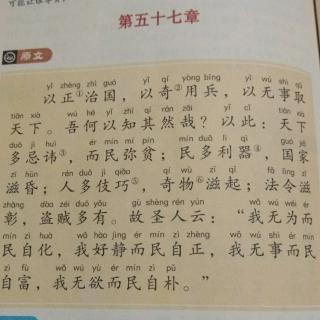 第五十七章
原文
yǐ zhèng zhì guó yǐ qí yòng bīng yǐ wú shì qǔ
以正①治国，以奇②用兵，以无事取
tiān xià wú hé yǐ zhī qí rán zāi yǐ cǐ tiān xià
天下。吾何以知其然哉？以此：天下
duō jì huì ér mín mí pín mín duō lì qì guó jiā
多忌讳③，而民弥贫；民多利器④，国家
zī hūn rén duō jì qiǎo qí wù zī qǐ fǎ lìng zī
滋昏；人多伎巧⑤，奇物⑥滋起；法令滋
zhāng dào zéi duō yǒu gù shèng rén yún wǒ wú wéi ér
彰，盗贼多有。故圣人云：“我无为而
mín zì huà wǒ hào jìng ér mín zì zhèng wǒ wú shì ér mín
民自化，我好静而民自正，我无事而民
zì fù wǒ wú yù ér mín zì pǔ
自富，我无欲而民自朴。”